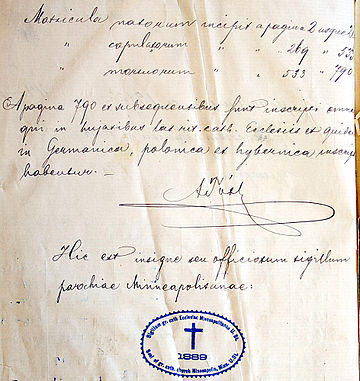 Matricula natorum incipit a pagina 2 usque
" copulatorum " " 269 " 530
" mortuorum " " 533 " 790
A pagina 790 et subsequentibus sunt inscripti omnes
qui in hujatibus lat. rit. cath. Ecclesiis et quidem
in Germanica, polonica et hybernica inscripti
habentur. —
A Tóth
Hic est insigne seu officiosum sigillum
parochiae Minneapolisanae:
Sigillum gr. cath. Ecclesiae Minneapolitanae U. St.
1889
Seal of gr. cath. church Minneapolis, Minn. U. St.